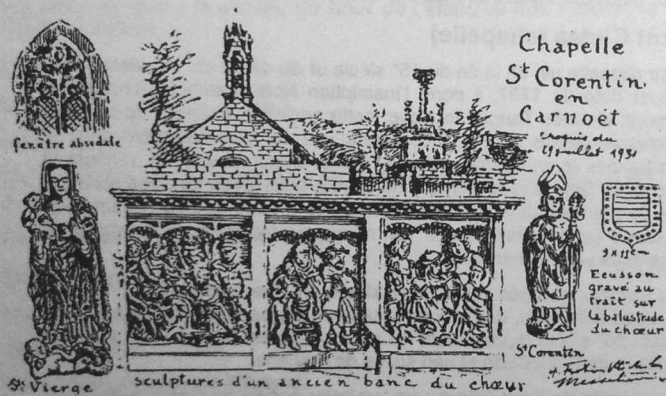 Chapelle
St Corentin
en
Carnoët
croquis du
19 juillet 1931
fenêtre absidale
9 x 11 cm
Ecusson
gravé au
trait sur
la balustrade
du chœur
St Corentin
Ste Vierge
sculptures d'un ancien banc du chœur